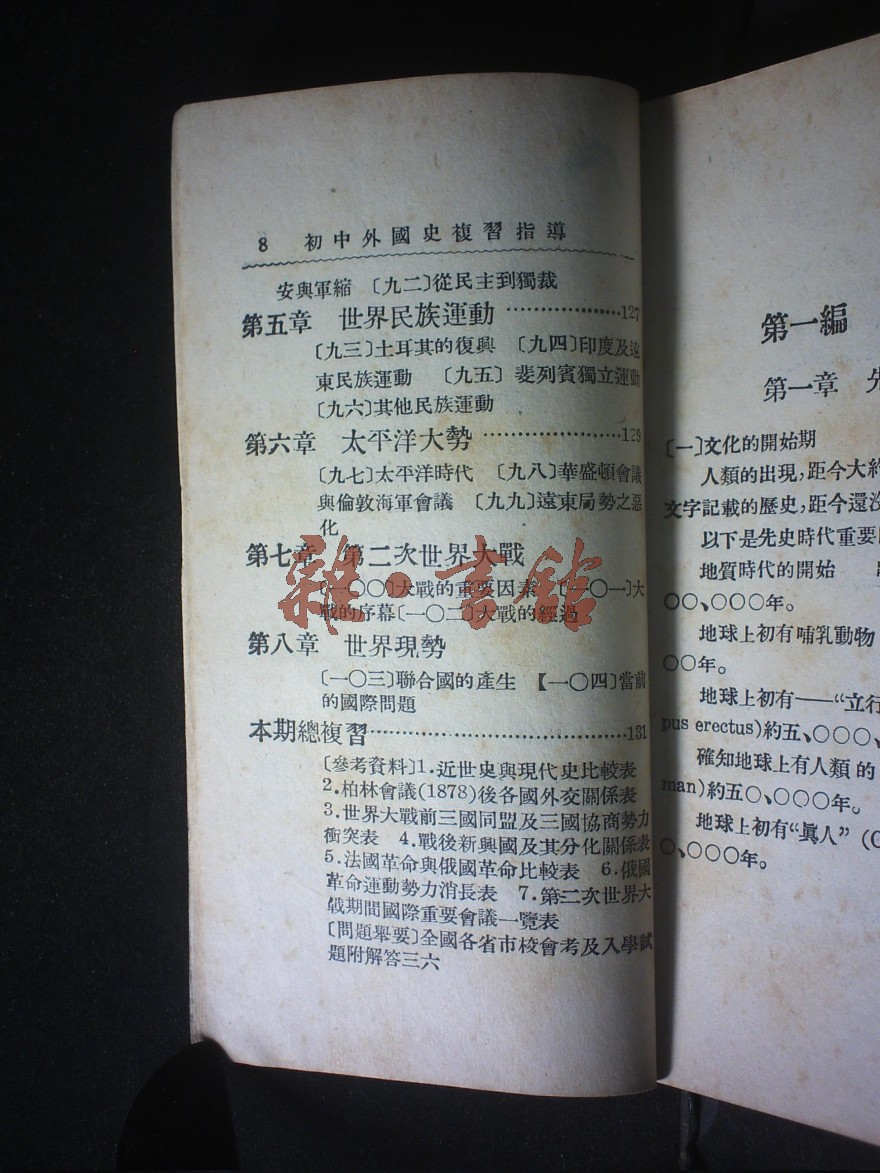 8 初中外國史複習指導
安與軍縮 〔九二〕從民主到獨裁
第五章 世界民族運動⋯⋯⋯⋯⋯⋯127
〔九三〕土耳其的復興 〔九四〕印度及遠
東民族運動 〔九五〕斐列賓獨立運動
〔九六〕其他民族運動
第六章 太平洋大勢⋯⋯⋯⋯⋯⋯129
〔九七〕太平洋時代 〔九八〕華盛頓會議
與倫敦海軍會議 〔九九〕遠東局勢之惡
化
第七章 第二次世界大戰
〔一〇〇〕大戰的重要因素 〔一〇一〕大
戰的序幕〔一〇二〕大戰的經過
第八章 世界現勢
〔一〇三〕聯合國的產生 【一〇四〕當前
的國際問題
本期總複習⋯⋯⋯⋯⋯⋯⋯⋯⋯131
〔參考資料〕1.近世史與現代史比較表
2.柏林會議(1878)後各國外交關係表
3.世界大戰前三國同盟及三國協商勢力
衝突表 4.戰後新興國及其分化關係表
5.法國革命與俄國革命比較表 6.俄國
革命運動勢力消長表 7.第二次世界大
戰期間國際重要會議一覽表
〔問題舉要〕全國各省市校會考及入學試
題附解答三六
雜·書館
第一編
第一章
〔一〕文化的開始期
人類的出現,距今大約
文字記載的歷史,距今還沒
以下是先史時代重要
地質時代的開始
〇〇、〇〇〇年。
地球上初有哺乳動物
〇〇年。
地球上初有——“立行
pus erectus)約五、〇〇〇、
確知地球上有人類的
man)約五〇、〇〇〇年。
地球上初有“眞人” (
〇、〇〇〇年。